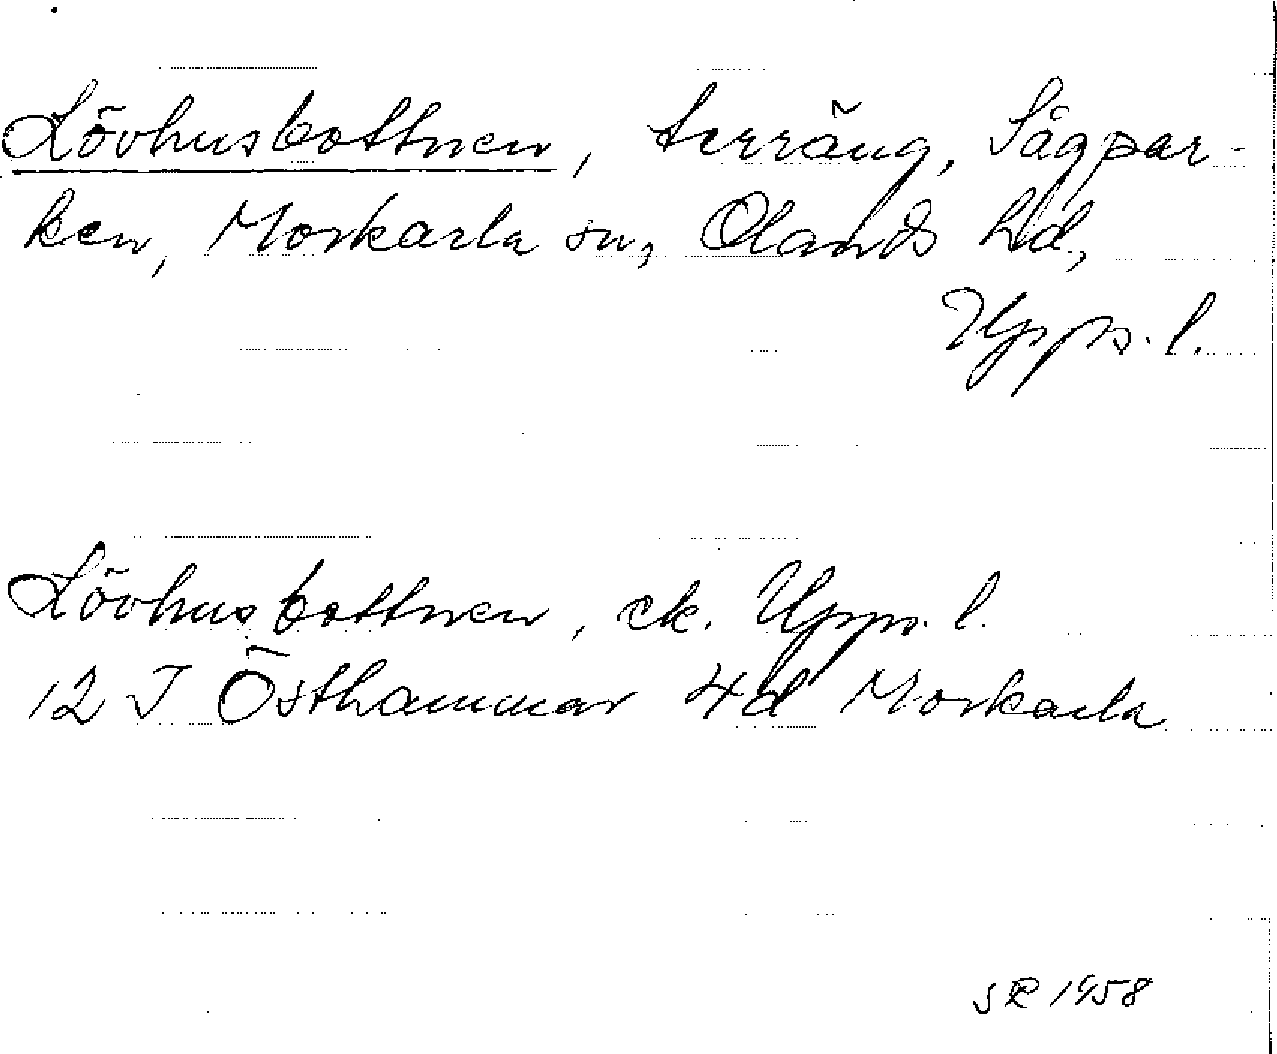 Lövhusbottnen, terräng, Sågpar-
ken, Morkarla sn, Olands hd,
Upps. l.
Lövhusbottnen, ek. Upps. l.
12 I Östhammar 4d Morkarla
SR 1958